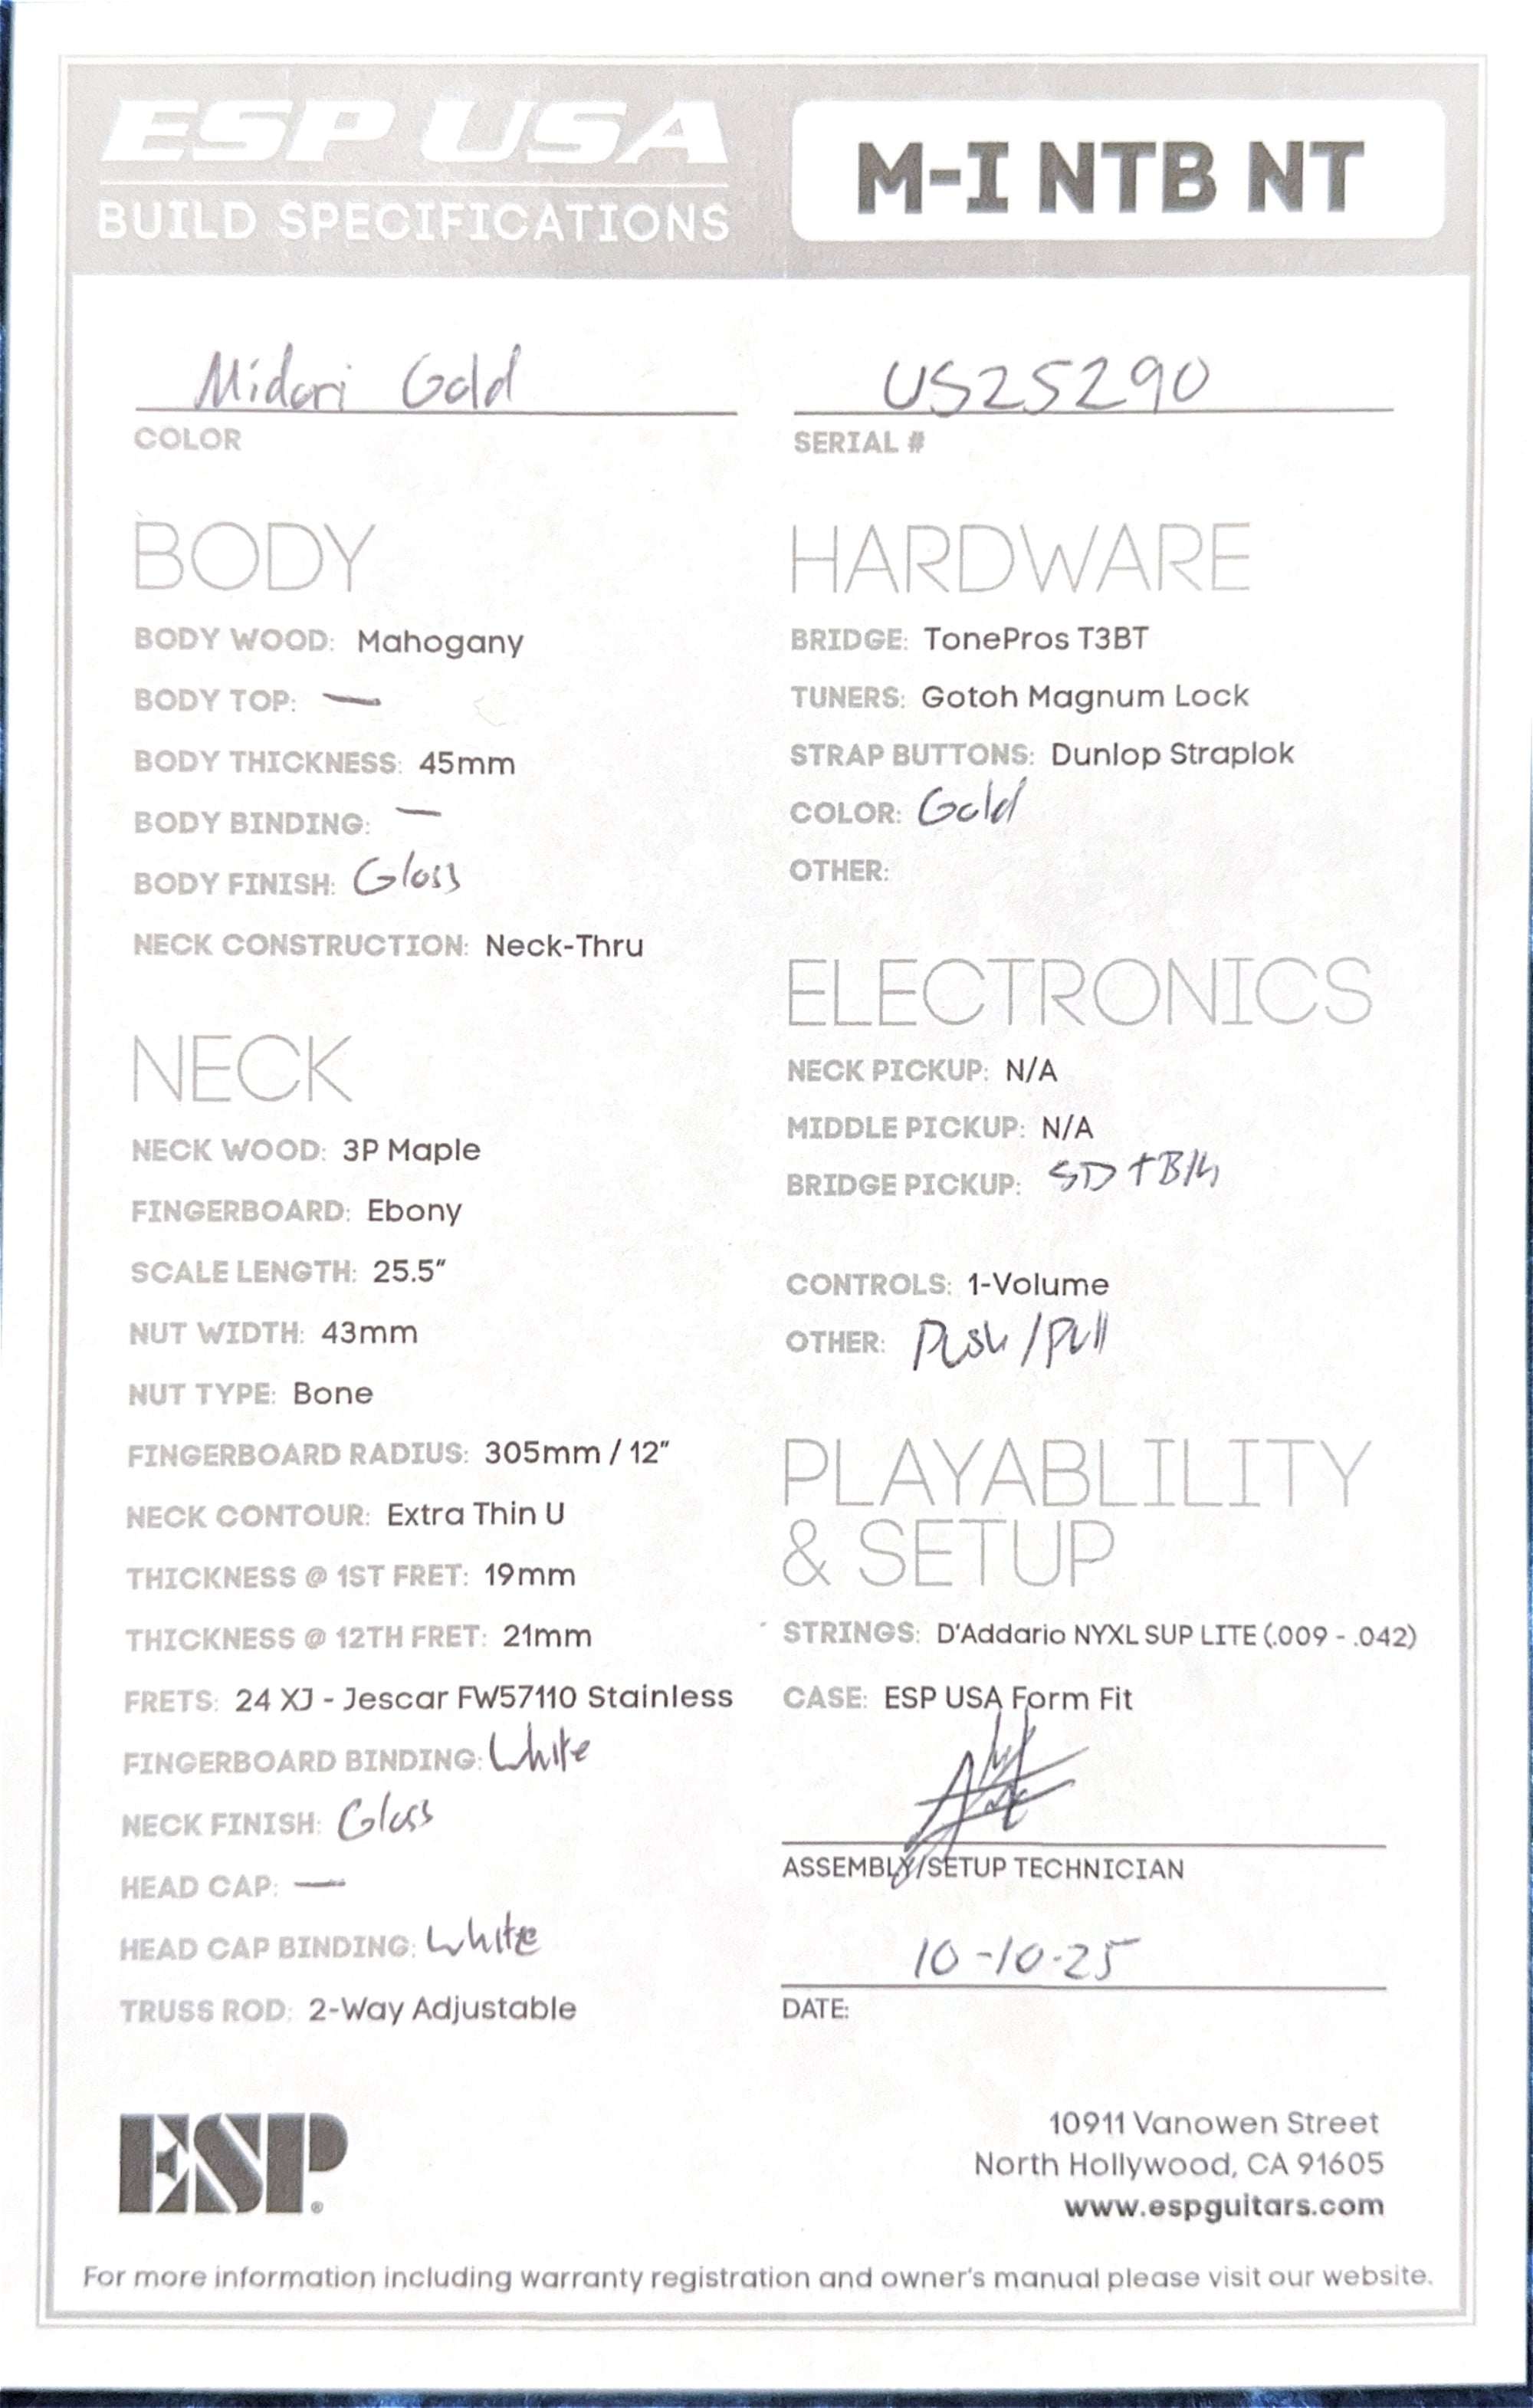 ESP USA
BUILD SPECIFICATIONS
M-I NTB NT
Midori Gold
COLOR
US25290
SERIAL #
BODY
BODY WOOD: Mahogany
BODY TOP: —
BODY THICKNESS: 45mm
BODY BINDING: —
BODY FINISH: Gloss
NECK CONSTRUCTION: Neck-Thru
NECK
NECK WOOD: 3P Maple
FINGERBOARD: Ebony
SCALE LENGTH: 25.5"
NUT WIDTH: 43mm
NUT TYPE: Bone
FINGERBOARD RADIUS: 305mm / 12"
NECK CONTOUR: Extra Thin U
THICKNESS @ 1ST FRET: 19mm
THICKNESS @ 12TH FRET: 21mm
FRETS: 24 XJ - Jescar FW57110 Stainless
FINGERBOARD BINDING: White
NECK FINISH: Gloss
HEAD CAP: —
HEAD CAP BINDING: White
TRUSS ROD: 2-Way Adjustable
HARDWARE
BRIDGE: TonePros T3BT
TUNERS: Gotoh Magnum Lock
STRAP BUTTONS: Dunlop Straplok
COLOR: Gold
OTHER:
ELECTRONICS
NECK PICKUP: N/A
MIDDLE PICKUP: N/A
BRIDGE PICKUP: SD
CONTROLS: 1-Volume
OTHER: Push/Pull
PLAYABLILITY
& SETUP
STRINGS: D'Addario NYXL SUP LITE (.009 - .042)
CASE: ESP USA Form Fit
ASSEMBLY/SETUP TECHNICIAN
10-10-25
DATE:
ESP®
10911 Vanowen Street
North Hollywood, CA 91605
www.espguitars.com
For more information including warranty registration and owner's manual please visit our website.